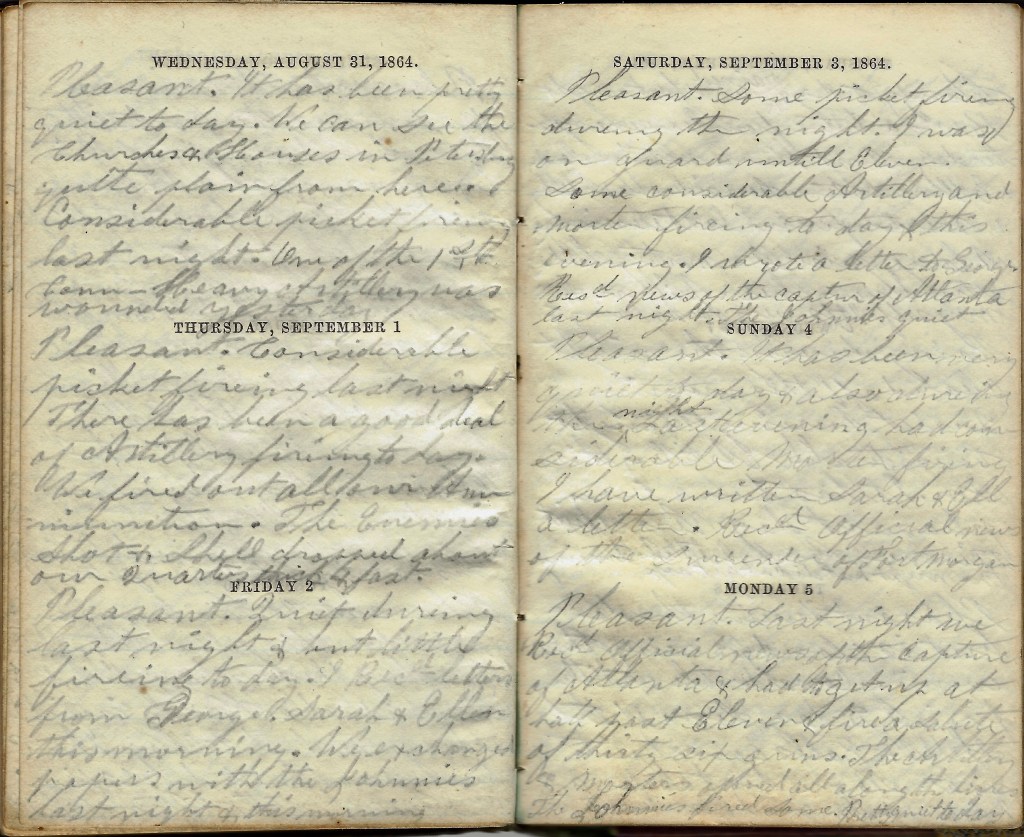 WEDNESDAY, AUGUST 31, 1864.
Pleasant. It has been pretty
quiet to day. We can see the
Churches & Houses in Petersburg
quite plain from here.
Considerable picket fireing
last night. One of the 1st
Conn Heavy Artillery was
wounded
THURSDAY, SEPTEMBER 1
Pleasant. Considerable
picket fireing last night
There has been a good deal
of Artillery fireing to day.
We fired out all our Am
munition. The Enemies
Shot & Shell dropped about
our Quarters thick & fast.
FRIDAY 2
Pleasant. Quiet during
last night & but little
fireing to day. I Recd letters
from George. Sarah & Ellen
this morning. We exchanged
papers with the Johnnies
last night & this morning
SATURDAY, SEPTEMBER 3, 1864.
Pleasant. Some picket fireing
dureing the night. I was
on guard untill Eleven.
Some considerable Artillery and
morter fireing to day & this
evening. I wrote a letter to George
Recd news of the captur of Atlanta
last night. The Johnnies quiet
SUNDAY 4
Pleasant. It has been very
quiet to day & also dureing
the night Last evening had con
siderable morter fireing
I have written Sarah & Ell
a letter. Recd Official news
of the surrender of Fort Morgan
MONDAY 5
Pleasant. Last night we
Recd Official news of the Capture
of Atlanta & had to get up at
half past Eleven & fire a salute
of thirty six guns. The Artillery
& Morters fired all along the lines
The Johnnies fired some. Pretty quiet to day